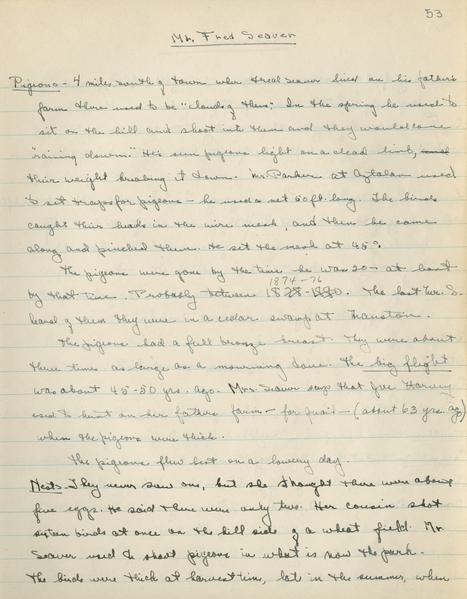 53
Mr. Fred Seaver
Pigeons - 4 miles south of town where Fred Seaver lived on his father's
farm there used to be "clouds of them." In the spring he used to
sit on the hill and shoot into them and they would come
"raining down." He's seen pigeons light on a dead limb,
their weight breaking it down. Mr. Parker at Aztalan used
to set traps for pigeons - he used a net 50 ft. long. The birds
caught their heads in the wire mesh, and then he came
along and pinched them. He set the mesh at 45°
The pigeons were gone by the time he was 20 - at least
1874-76
by that time. Probably between 1878-1880. The last Mr. S.
heard of them they were in a cedar swamp at Mauston.
The pigeons had a full bronze breast. They were about
three times as large as a mourning dove. The big flight
was about 45-50 yrs. ago. Mrs. Seaver says that Joe Harvey
used to hunt on her fathers farm - for quail - (about 63 yrs. ago)
when the pigeons were thick.
The pigeons flew best on a lowery day.
Nests - They never saw one, but she thought there were about
five eggs. He said there were only two. Her cousin shot
sixteen birds at once on the hill side of a wheat field. Mr.
Seaver used to shoot pigeons in what is now the park.
The birds were thick at harvest time, late in the summer, when